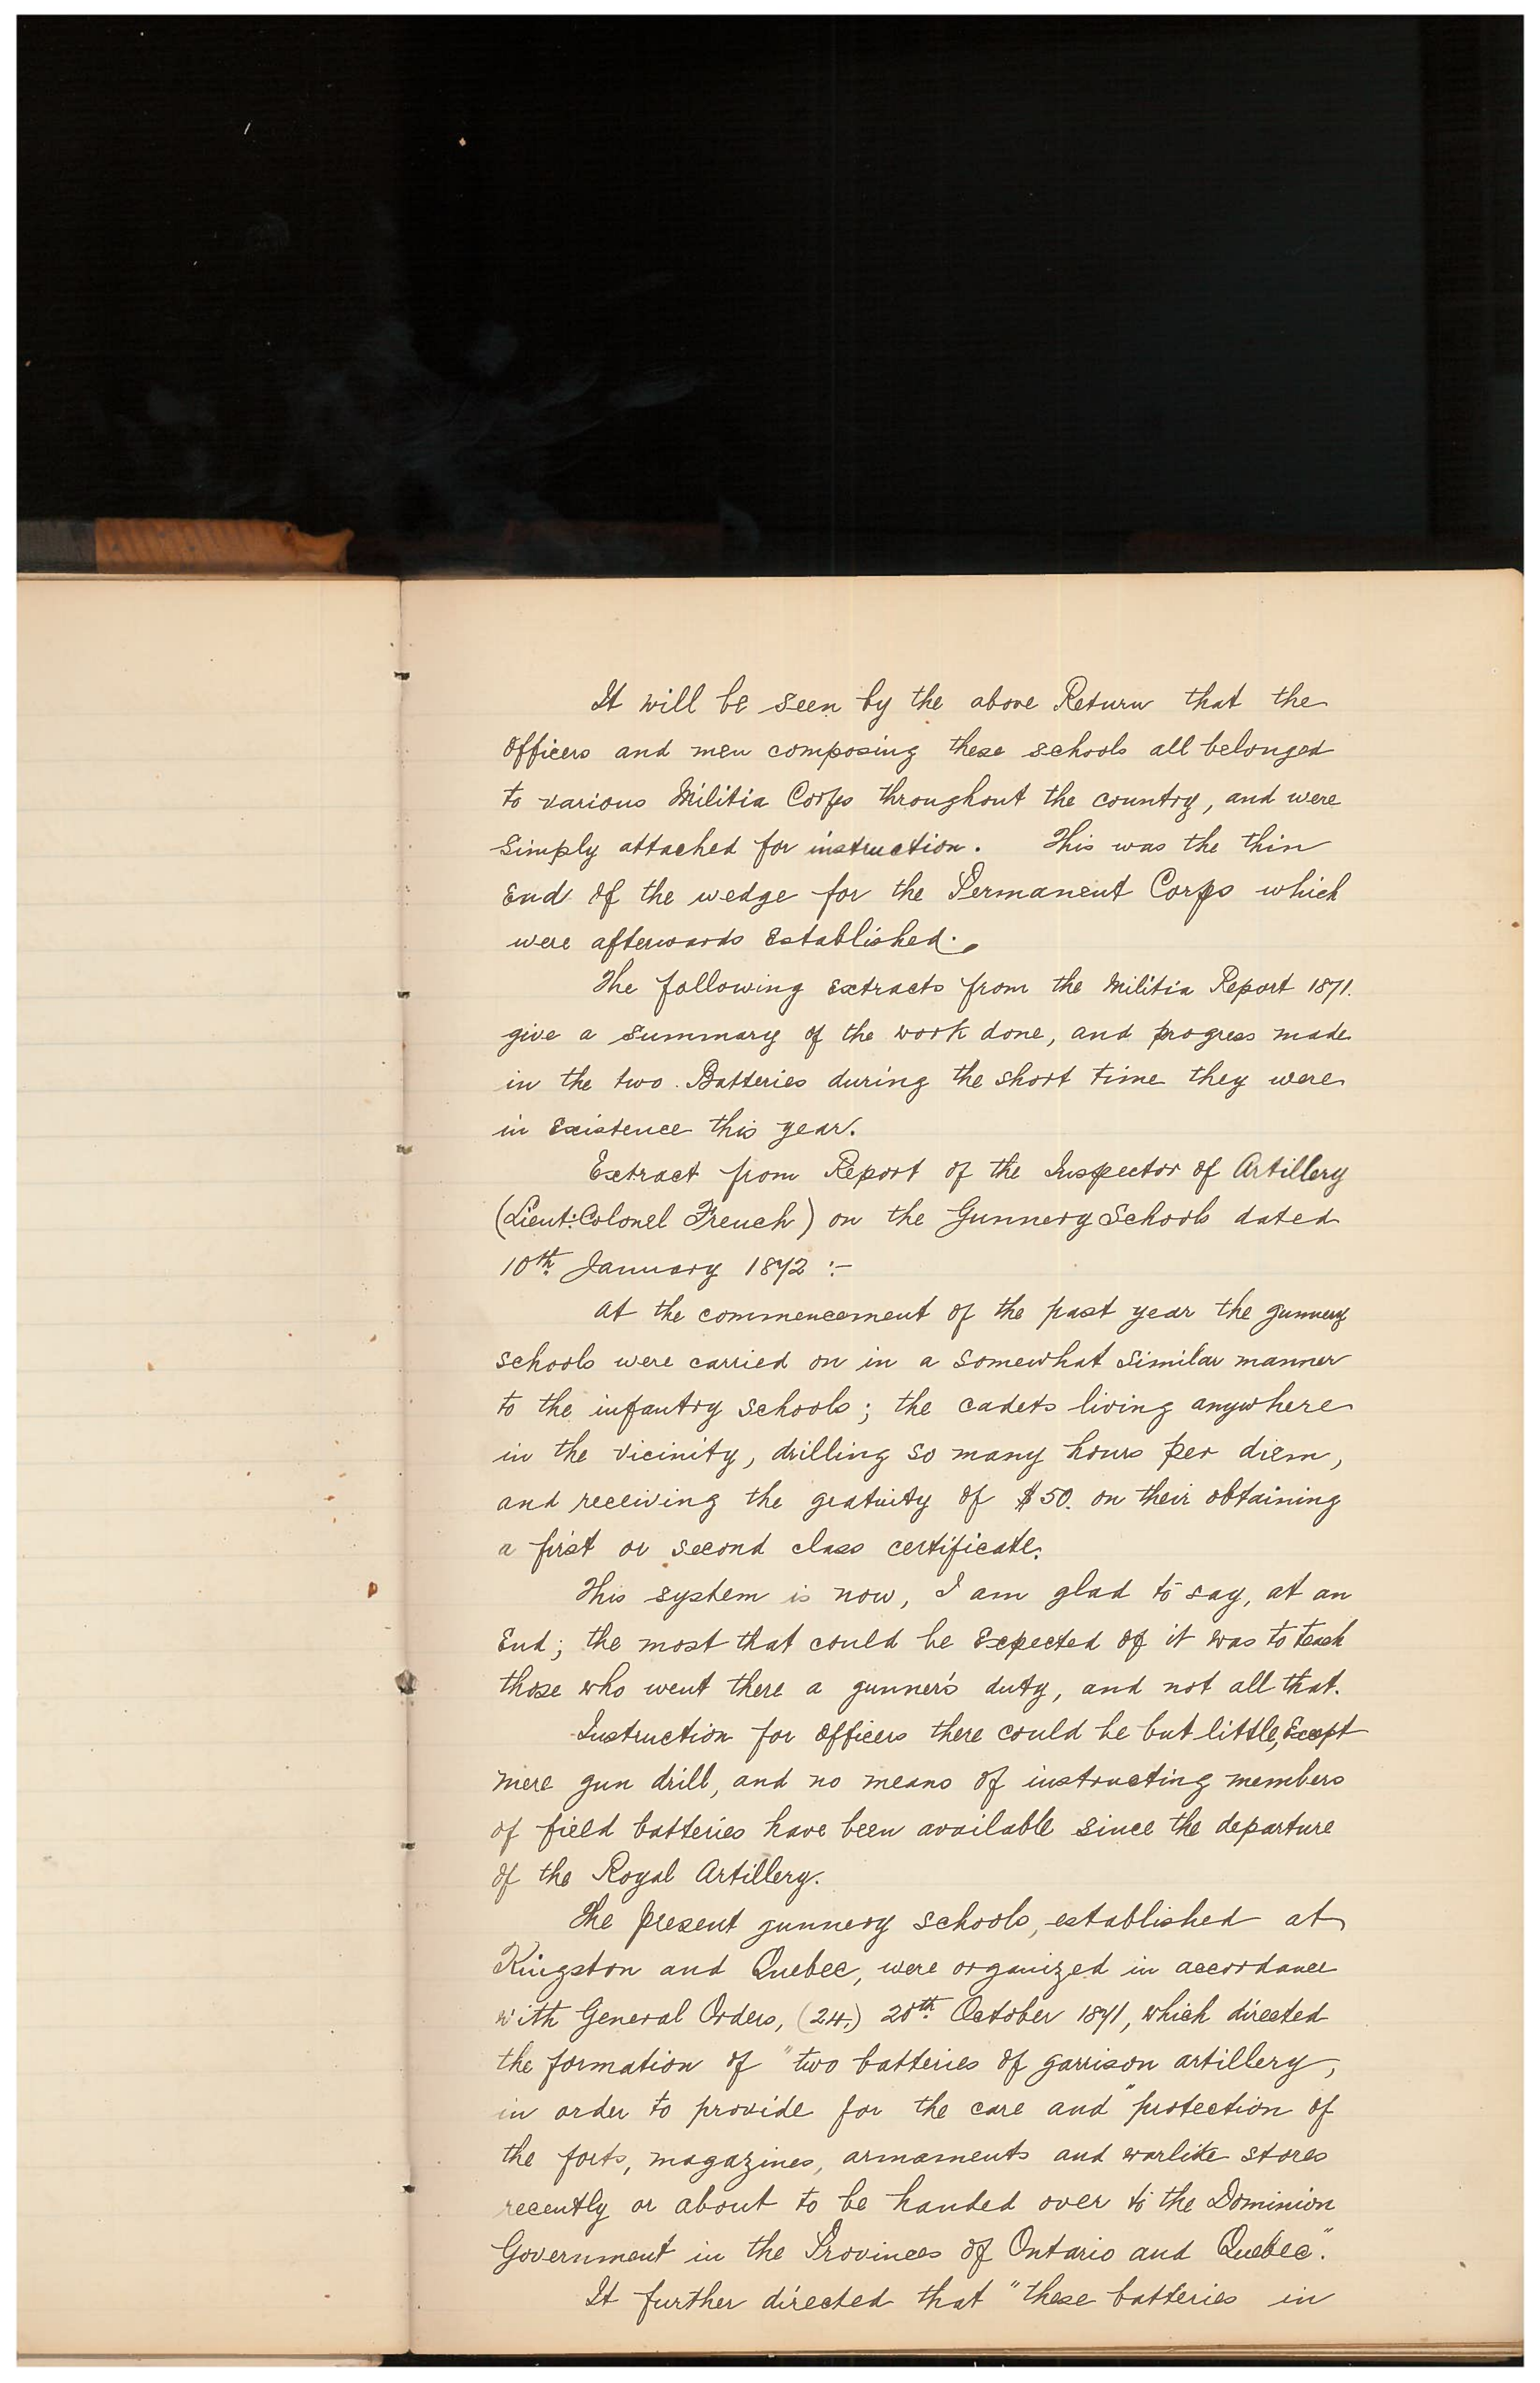 It will be seen by the above Return that the
Officers and men composing these schools all belonged
to various Militia Corps throughout the country, and were
simply attached for instruction. This was the thin
End of the wedge for the Permanent Corps which
were afterwards Established.
The following Extracts from the Militia Report 1871.
give a summary of the work done, and progress made
in the two Batteries during the short time they were
in Existence this year.
Extract from Report of the Inspector of Artillery
(Lieut: Colonel French) on the Gunnery Schools dated
10th January 1872 :-
At the commencement of the past year the gunnery
schools were carried on in a somewhat similar manner
to the infantry schools; the cadets living anywhere
in the vicinity, drilling so many hours per diem,
and receiving the gratuity of $50. on their obtaining
a first or second class certificate.
This system is now, I am glad to say, at an
End; the most that could be Expected of it was to teach
those who went there a gunner's duty, and not all that.
Instruction for Officers there could be but little, Except
mere gun drill, and no means of instructing members
of field batteries have been available since the departure
of the Royal Artillery.
The present gunnery schools, established at
Kingston and Quebec, were organized in accordance
with General Orders, (24.) 20th October 1871, which directed
the formation of "two batteries of garrison artillery,
in order to provide for the care and" protection of
the forts, magazines, armaments and warlike stores
recently or about to be handed over to the Dominion
Government in the Provinces of Ontario and Quebec."
It further directed that "these batteries in